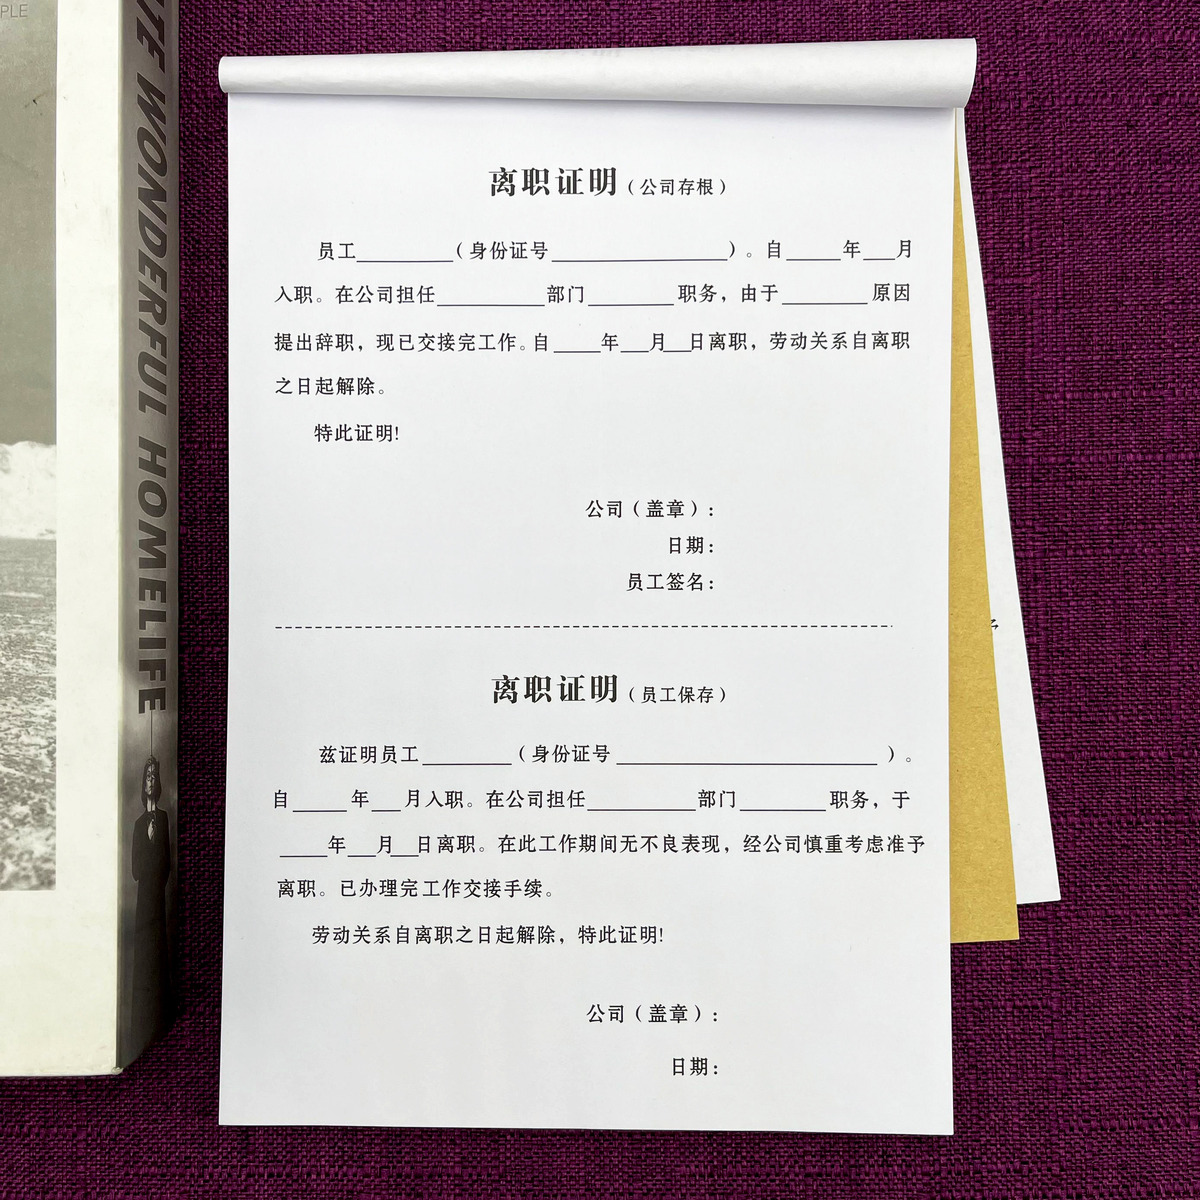 PLE
TE WONDERFUL HOMELIFE
离职证明（公司存根）
员工________（身份证号________________）。自_____年___月
入职。在公司担任__________部门________职务，由于________原因
提出辞职，现已交接完工作。自____年___月___日离职，劳动关系自离职
之日起解除。
特此证明!
公司（盖章）：
日期：
员工签名：
离职证明（员工保存）
兹证明员工________（身份证号________________________）。
自_____年___月入职。在公司担任__________部门________职务，于
____年___月___日离职。在此工作期间无不良表现，经公司慎重考虑准予
离职。已办理完工作交接手续。
劳动关系自离职之日起解除，特此证明!
公司（盖章）：
日期：